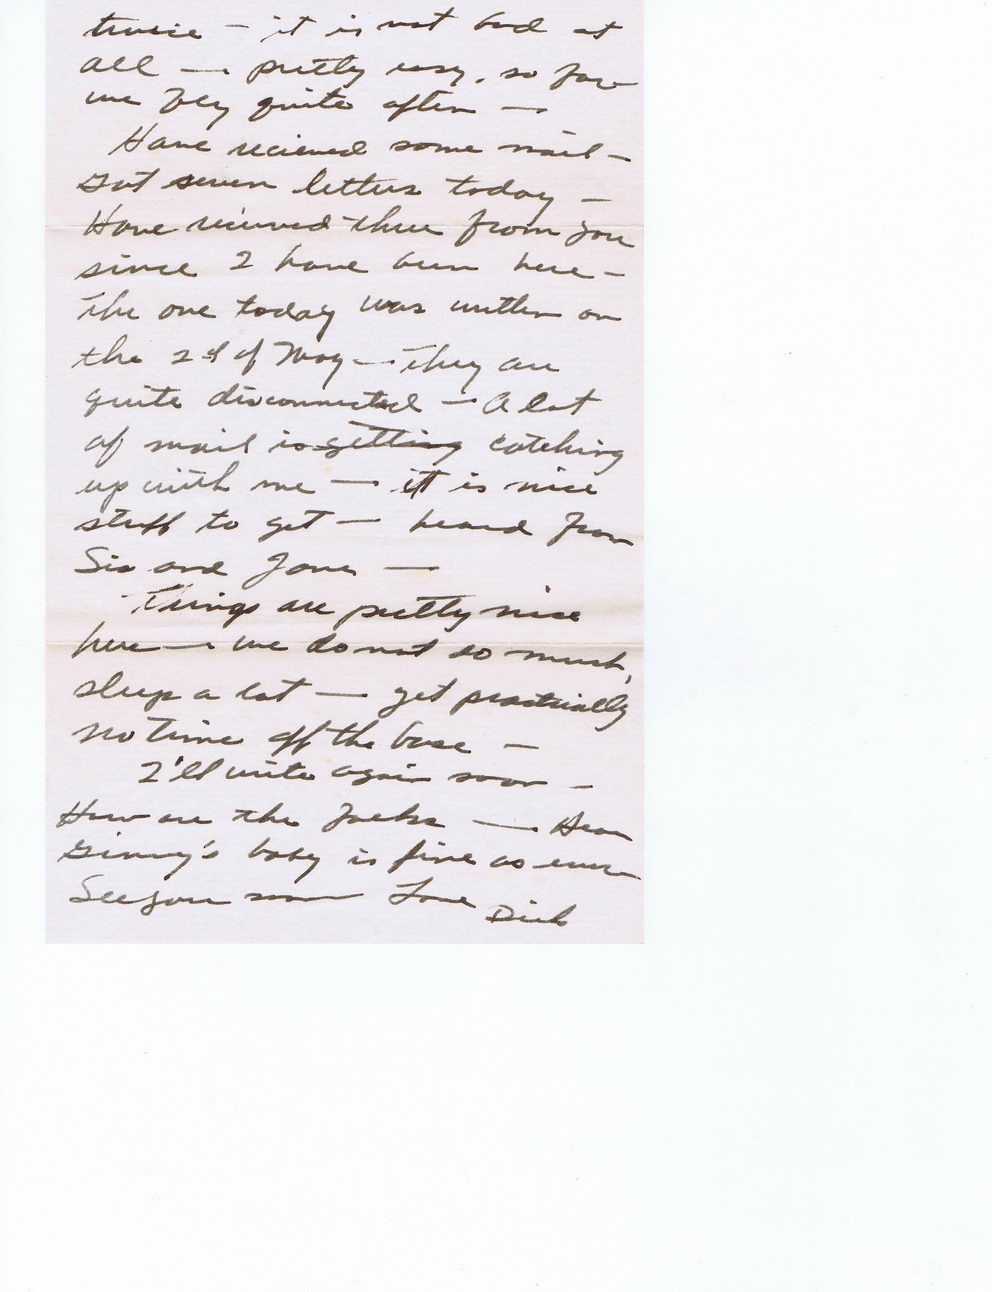 twice – it is not bad at
all – pretty easy, so far
we fly quite often –
Have recieved some mail –
Got seven letters today –
Have recieved three from you
since I have been here –
The one today was written on
the 2d of May – They are
quite disconnected – A lot
of mail is getting catching
up with me – it is nice
stuff to get – heard from
Sis and Jane –
Things are pretty nice
here – we do not so much,
sleep a lot – get practically
no time off the base –
I'll write again soon –
How are the – Hear
Ginny's baby is fine as ever
See you soon Love Dick